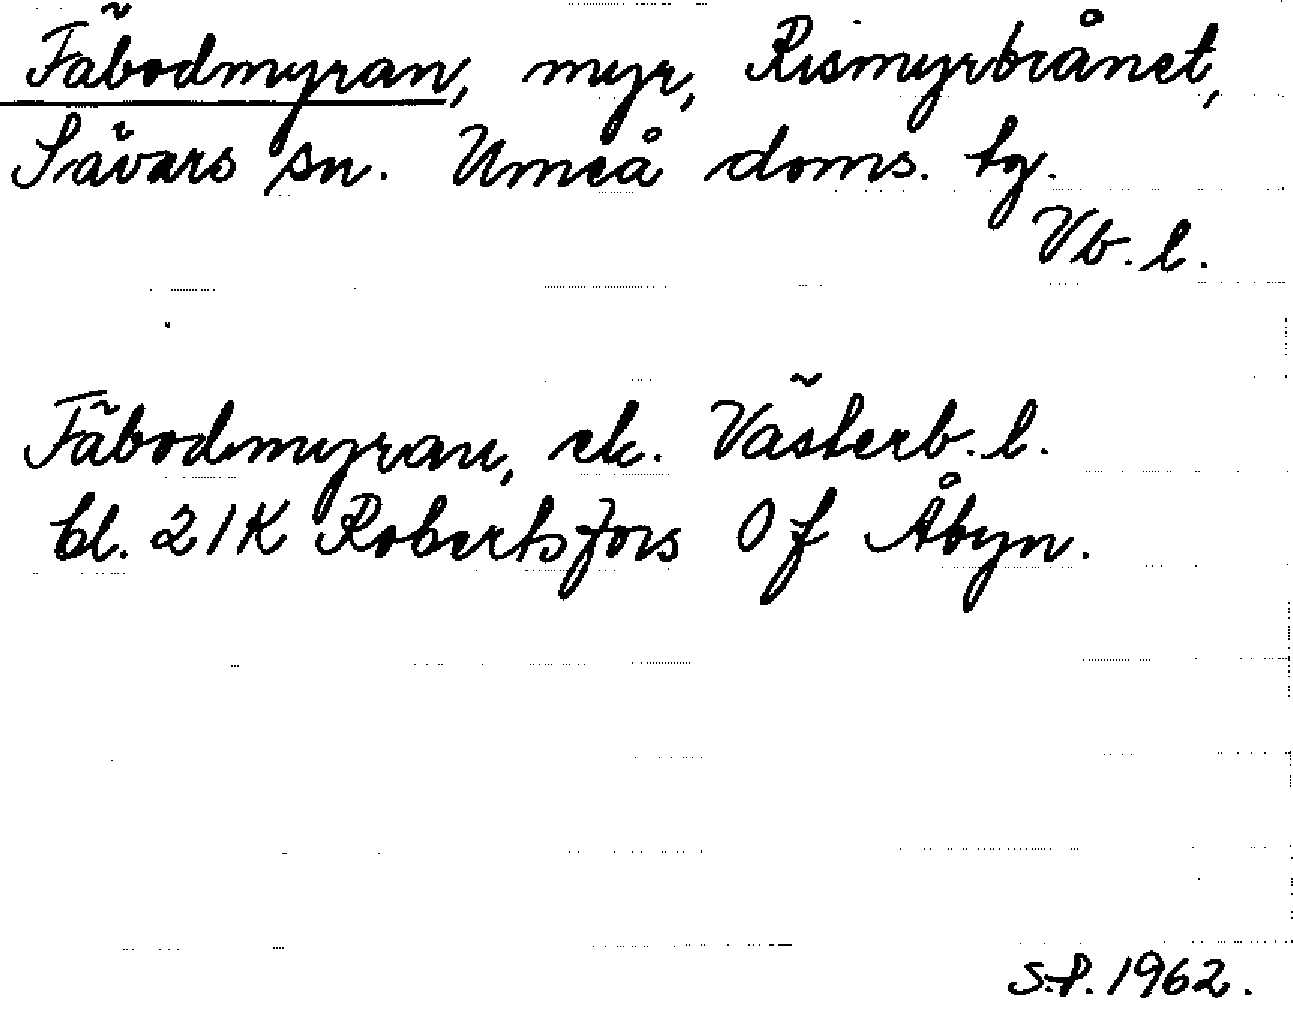 Fäbodmyran, myr, Rismyrbrånet,
Sävars sn. Umeå doms. tg.
Vb. l.
Fäbodmyran, ek. Västerb. l.
bl. 21K Robertsfors 0 f Åbyn.
S.P. 1962.